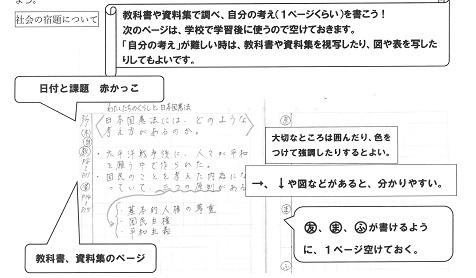 社会の宿題について
教科書や資料集で調べ、自分の考え(１ページくらい)を書こう！
次のページは、学校で学習後に使うので空けておきます。
「自分の考え」が難しい時は、教科書や資料集を視写したり、図や表を写した
りしてもよいです。
日付と課題　赤かっこ
わたしたちのくらしと日本国憲法
日本国憲法には、どのような
考え方があるのか。
・太平洋戦争後に、人々が平和
を願う中で作られた。
・国民のことを考えた内容にな
っていて、三つの原則がある
・基本的人権の尊重
・国民主権
・平和主義
教科書、資料集のページ
友
大切なところは囲んだり、色を
つけて強調したりするとよい。
→、↓や図などがあると、分かりやすい。
ま
友、ま、ふが書けるよう
に、１ページ空けておく。